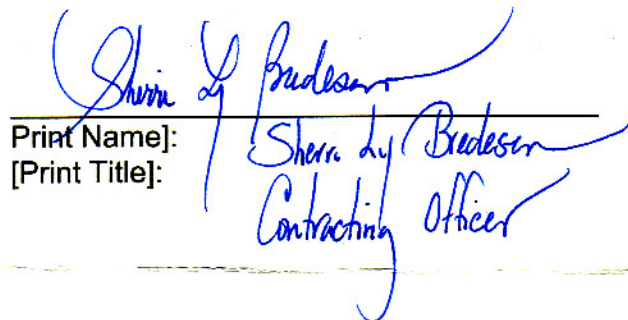 Sherri Ly Bredesen
Print Name]: Sherri Ly Bredesen
[Print Title]: Contracting Officer